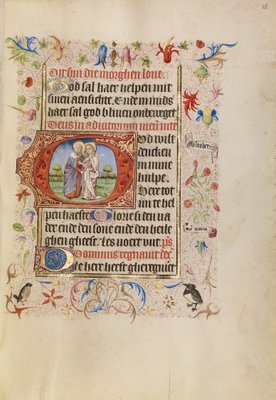 Dit sijn die morghen love.
God sal haer helpen mit
sinen aensichte. Ende in midds
haer sal god bliven onbeweget
Deus in adiutorium meum inte
God wilt
dencken
in mine
hulpe.
Here tot
mi te hel
pen haeste Glorie si den va
der ende den sone ende den heile
ghen gheest. Les voert wt ps
Dominus regnavit dec
Die here heeft gheregniert